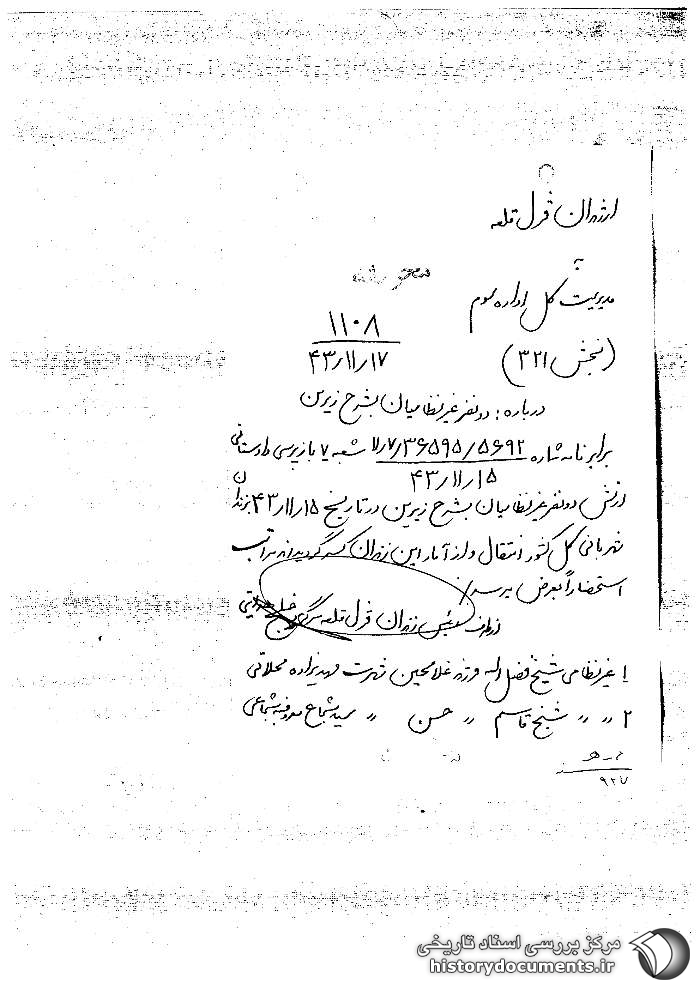 از زندان قزل قلعه
به
محرمانه
مدیریت کل اداره سوم
۱۱۰۸
۴۳/۱۱/۱۷
(بخش ۳۲۱)
درباره: دو نفر غیرنظامیان بشرح زیرین
برابر نامه شماره ۷/۳۶۵۹۵/۵۶۹۲ شعبه ۷ بازپرسی دادستانی
۴۳/۱۱/۱۵
ارتش دو نفر غیرنظامیان بشرح زیرین در تاریخ ۴۳/۱۱/۱۵ بزندان
شهربانی کل کشور انتقال و از آمار این زندان کسر گردیدند مراتب
استحضاراً بعرض میرسد
از طرف رئیس زندان قزل قلعه سرگرد
۱ غیرنظامی شیخ فضل اله فرزند غلامحسین شهرت مهدیزاده محلاتی
۲ " " شیخ قاسم " حسن " سید شجاع معروف به شجاعی
۹۲۷
مرکز بررسی اسناد تاریخی
historydocuments.ir